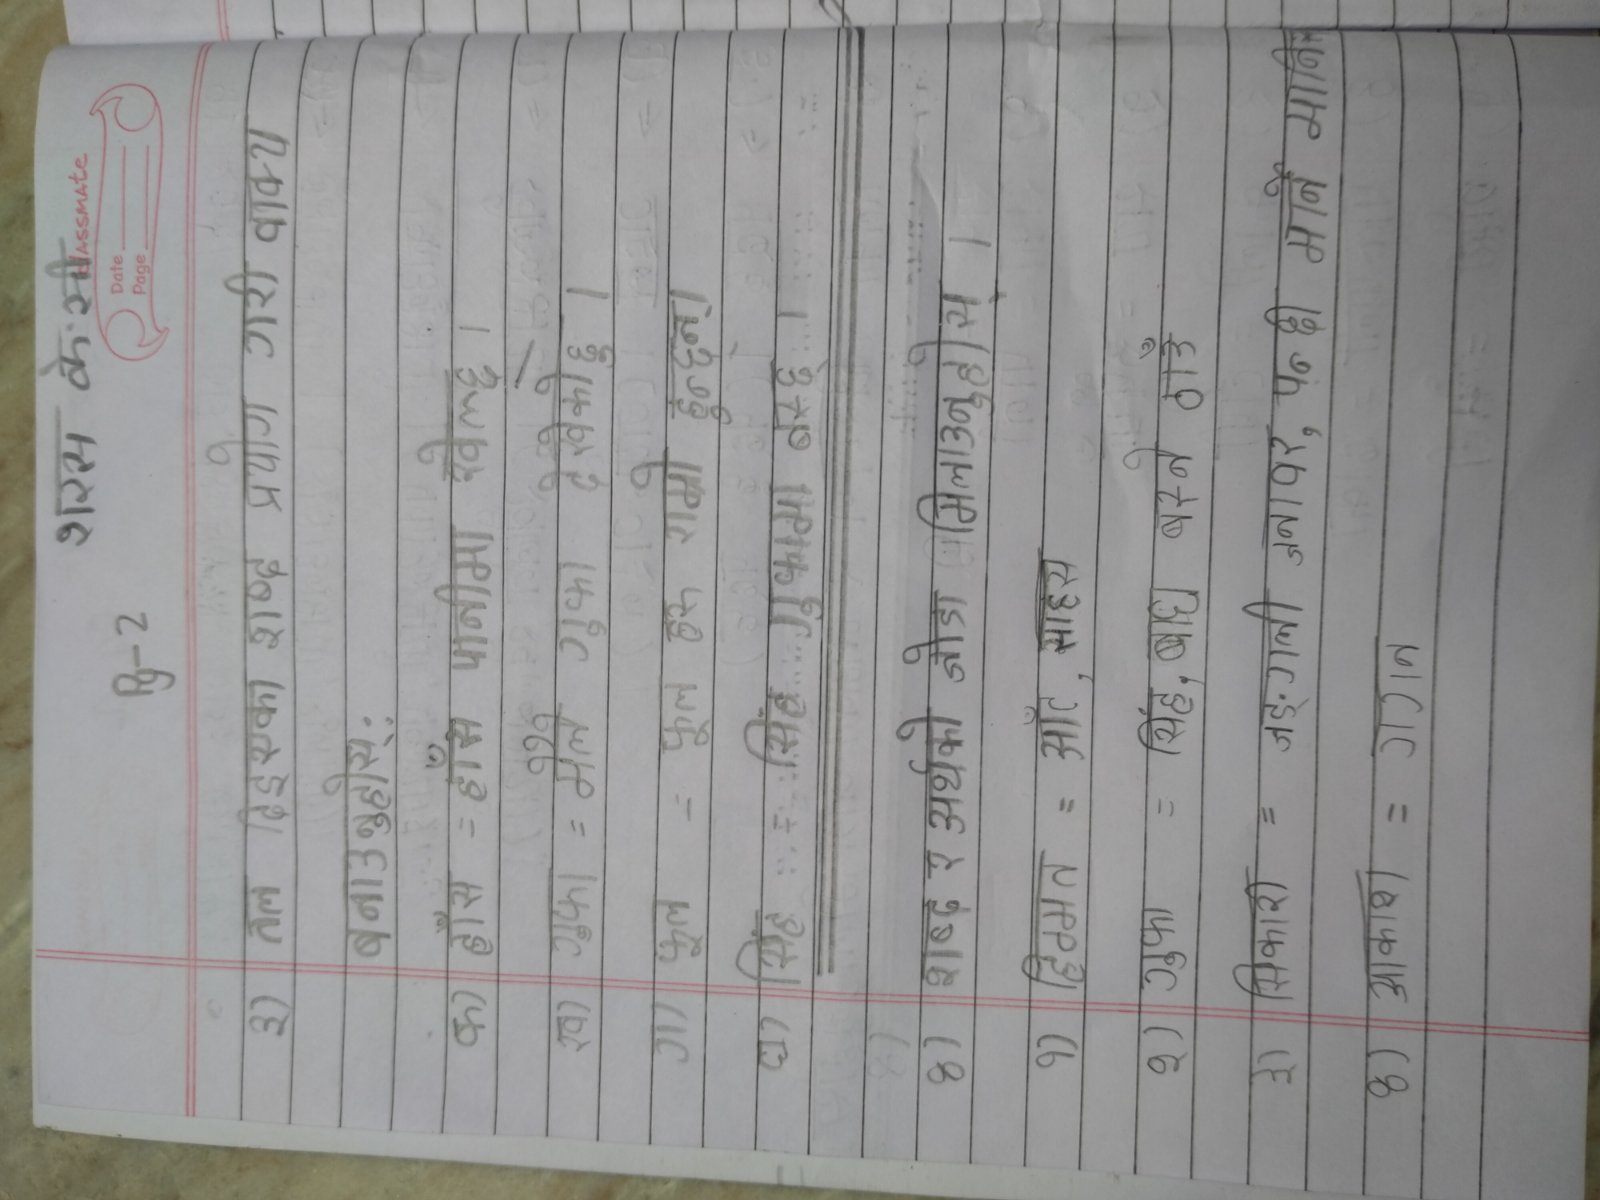 शारस के.सी
CLASSMATE
Date
Page
Pg-2
३) तल दिइएका शब्द प्रयोग गरी वाक्य
बनाउनुहोस्:
क) हाँस = हाँस पानीमा खेल्छ ।
ख) गुफा = मैले गुफा देखेको छु ।
ग) फूल = फूल हरु राम्रो हुन्छन्।
घ) सिंह सिंह गुफामा बस्छ ।
४) शब्द र अर्थको जोडा मिलाउनुहोस् ।
१) हिम्मत = आँट, साहस
२) गुफा = सिंह, बाघ बस्ने ठाउँ
३) सिकारी = जङ्गाली जनावर, पन्छी मार्ने मानिस
४) आकाश = गगन